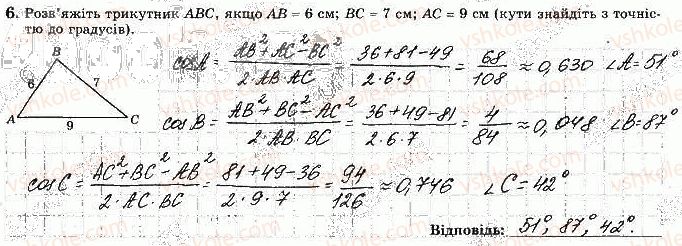 6. Розв'яжіть трикутник ABC, якщо AB = 6 см; BC = 7 см; AC = 9 см (кути знайдіть з точніс-
тю до градусів).
B
6 7
A 9 C
cosA = (AB²+AC²-BC²)/(2·AB·AC) = (36+81-49)/(2·6·9) = 68/108 ≈ 0,630 ∠A=51°
cosB = (AB²+BC²-AC²)/(2·AB·BC) = (36+49-81)/(2·6·7) = 4/84 ≈ 0,048 ∠B=87°
cosC = (AC²+BC²-AB²)/(2·AC·BC) = (81+49-36)/(2·9·7) = 94/126 ≈ 0,746 ∠C=42°
Відповідь: 51°, 87°, 42°.